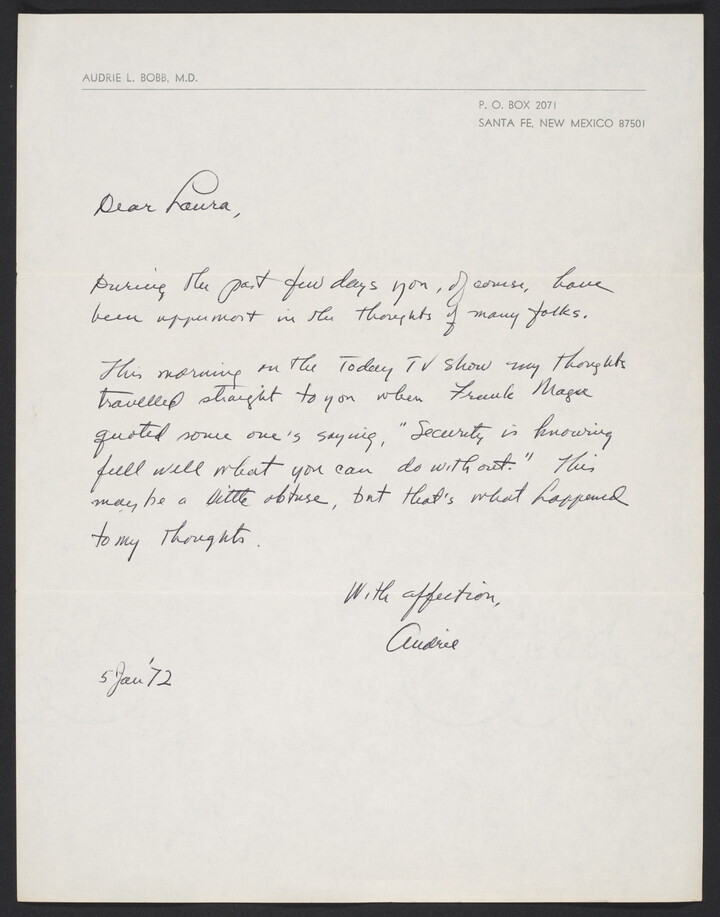 AUDRIE L. BOBB, M.D.
P. O. BOX 2071
SANTA FE, NEW MEXICO 87501
Dear Laura,
During the past few days you, of course, have
been uppermost in the thoughts of many folks.
This morning on the Today TV show my thoughts
travelled straight to you when Frank Magee
quoted some one's saying, "Security is knowing
full well what you can do without." This
maybe a little obtuse, but that's what happened
to my thoughts.
With affection,
Audrie
5 Jan '72